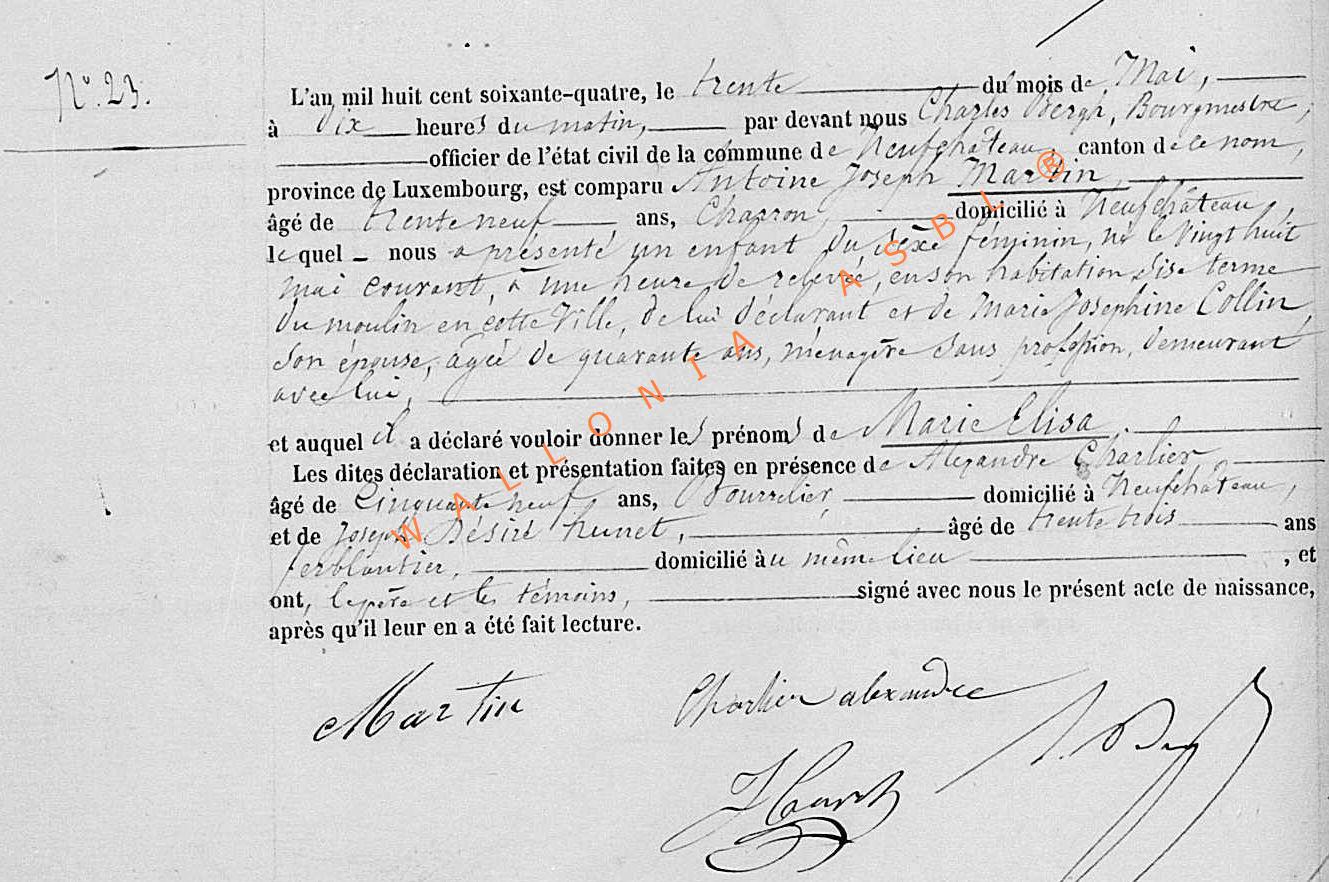 N° 23.
L'an mil huit cent soixante-quatre, le trente du mois de Mai,
à Dix heures du matin, par devant nous Charles Bergh, Bourgmestre,
officier de l'état civil de la commune de Neufchâteau, canton de ce nom,
province de Luxembourg, est comparu Antoine Joseph Martin,
âgé de trente neuf ans, Charron, domicilié à Neufchâteau,
le quel nous a présenté un enfant du sexe féminin, né le vingt huit
mai courant, à une heure de relevée, en son habitation sise terme
du moulin en cette Ville, de lui déclarant et de Marie Josephine Collin,
son épouse, agée de quarante ans, ménagère sans profession, demeurant
avec lui,
et auquel il a déclaré vouloir donner les prénoms de Marie Elisa.
Les dites déclaration et présentation faites en présence de Alexandre Charlier,
âgé de Cinquante neuf ans, Bourrelier domicilié à Neufchâteau,
et de Joseph Désiré âgé de trente trois ans
ferblantier, domicilié au même lieu, et
ont, le père et les témoins, signé avec nous le présent acte de naissance,
après qu'il leur en a été fait lecture.
Martin
Charlier alexandre
WALLONIA ASBL ®